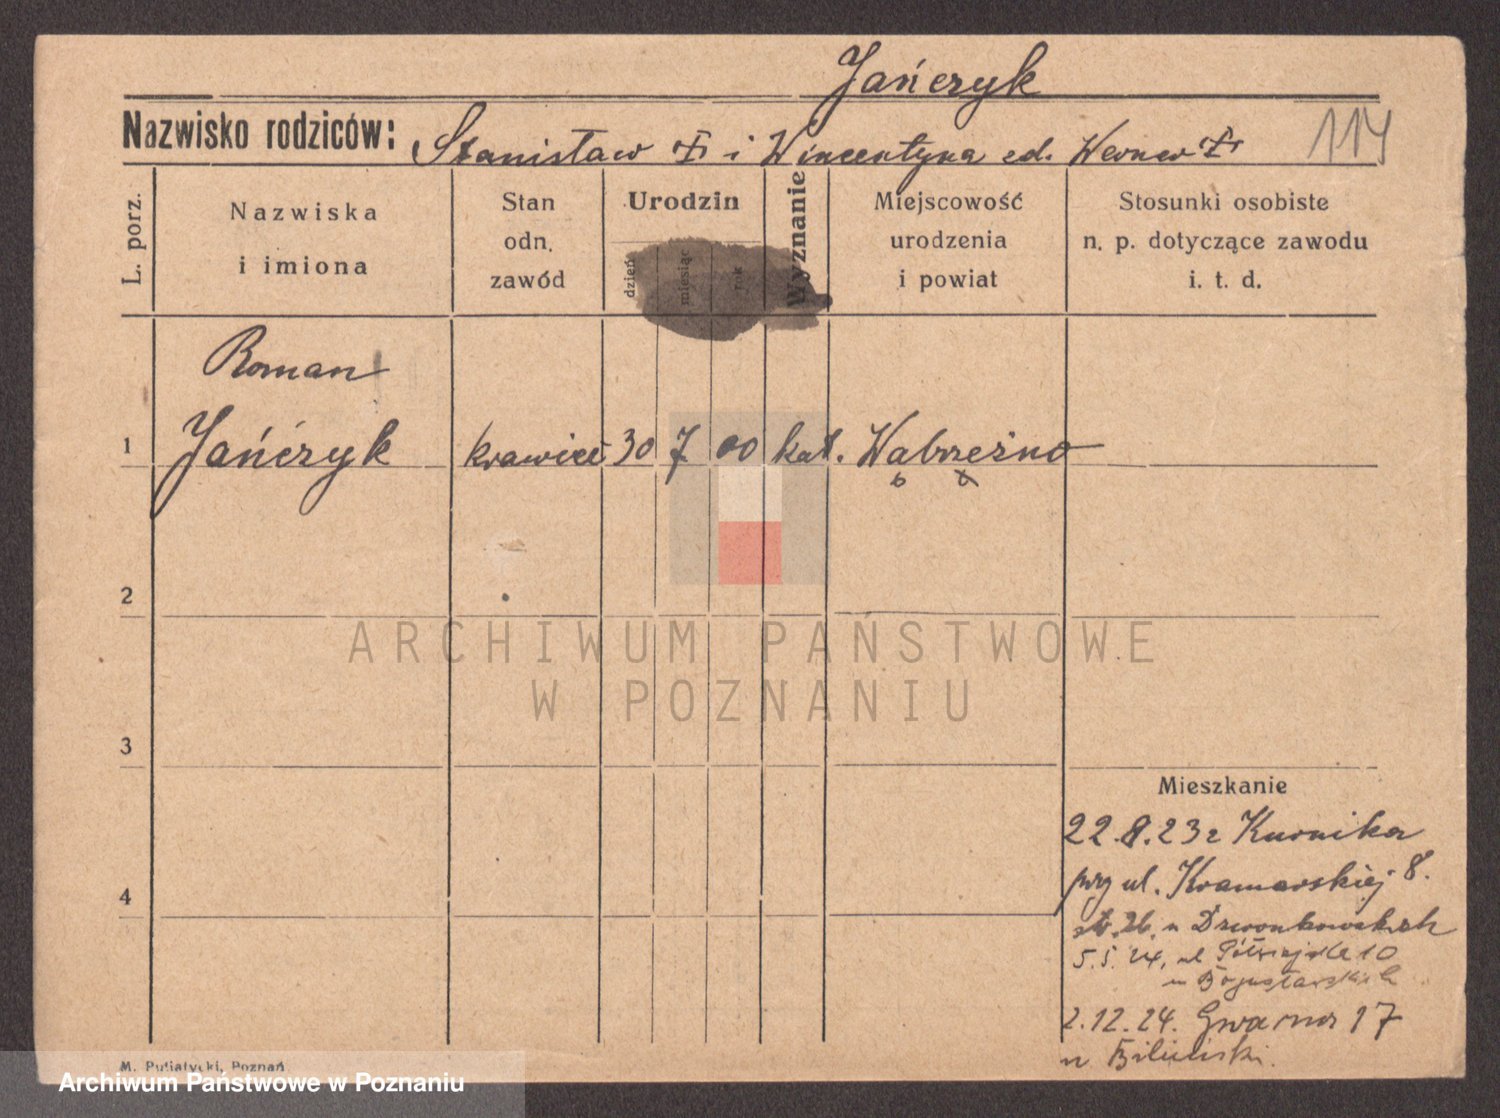 Jańczyk
Nazwisko rodziców: Stanisław i Wincentyna
114
L. porz.
Nazwiska
i imiona
Stan
odn.
zawód
Urodzin
dzień
miesiąc
rok
Wyznanie
Miejscowość
urodzenia
i powiat
Stosunki osobiste
n. p. dotyczące zawodu
i. t. d.
Roman
1 Jańczyk krawiec 30 7 00 kat. Wąbrzeźno
2
3
4
ARCHIWUM PAŃSTWOWE
W POZNANIU
Mieszkanie
22.8.23 z Kurnika
przy ul. Kramarskiej 8.
5.5.24, ul Półwiejska 10
2.12.24. Gwarna 17
M. Putiatycki, Poznań
Archiwum Państwowe w Poznaniu